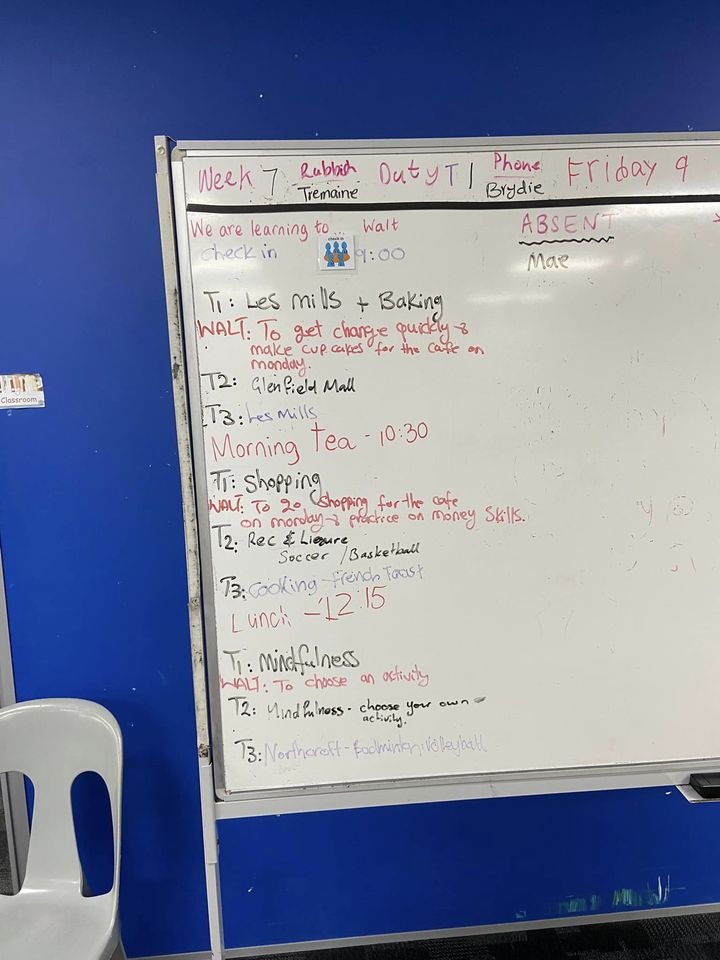 Week 7 Rubbish Duty T1 Phone Friday 9
Tremaine Brydie
We are learning to... Walt ABSENT
check in check in 9:00 Mae
T1: Les mills + Baking
WALT: To get change quickly &
make cup cakes for the cafe on
monday.
T2: Glenfield Mall
T3: Les Mills
Morning tea - 10:30
T1: Shopping
WALT: To go shopping for the cafe
on monday & practice on money skills.
T2: Rec & Liesure
Soccer / Basketball
T3: Cooking - French Toast
Lunch - 12:15
T1: Mindfulness
WALT: To choose an activity
T2: Mindfulness - choose your own
activity.
T3: Northcroft - Badminton, Volleyball
Classroom